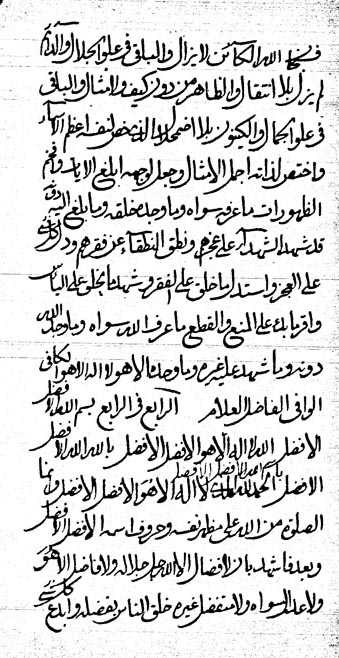 فسبحان الله الكائن لا يزال والباقي في علو الجلال والذي
لم يزل بلا انتقال والظاهر من دون كيف والامثال والباقي
في علو الجمال والكينون بلا اضمحلال الذي خص لنفسه اعظم الاسماء
واختص لذاته اجل الامثال وجعل لوجهه ابلغ الايات
الظهورات ما عرفه سواه وما وحده خلقه وما بلغ اليه دونه
قد شهد الشهداء على عجزهم ونطق النطقاء عن فقرهم ودل
على العجز واستدل ما خلق على الفقر وشهد ما يخلق على الياس
واقر بابك على المنع والقطع ما عرف الله سواه وما وحد الله
دونه وما شهد عليه غيره وما وحده الا هو لا اله الا هو الكافي
الوافي الفاضل العلام الرابع في الرابع بسم الله الافضل
الافضل الله لا اله الا هو الافضل الافضل بالله الله الافضل
الافضل بسم الله الافضل الافضل الحمد لله الذي لا اله الا هو الافضل الافضل وانما
الصلوة من الله على مظهر نفسه وحروف اسمه الافضل الافضل
وبعد فاشهد بان لا فضال الا الله جل جلاله ولا فاضل الا هو
ولا عدل سواه ولا متفضل غيره خلق الناس بفضله وابدع كل